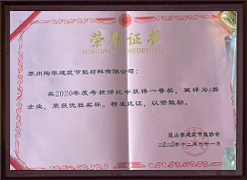 荣誉证书
HONORARY CREDENTIAL
苏州 建筑节能材料有限公司:
在2020年度考核评比中获得一等奖,被评为 类
企业,荣获优胜奖杯。特发此证,以资鼓励。
昆山市建筑节能协会
二〇二〇年十二月三十一日